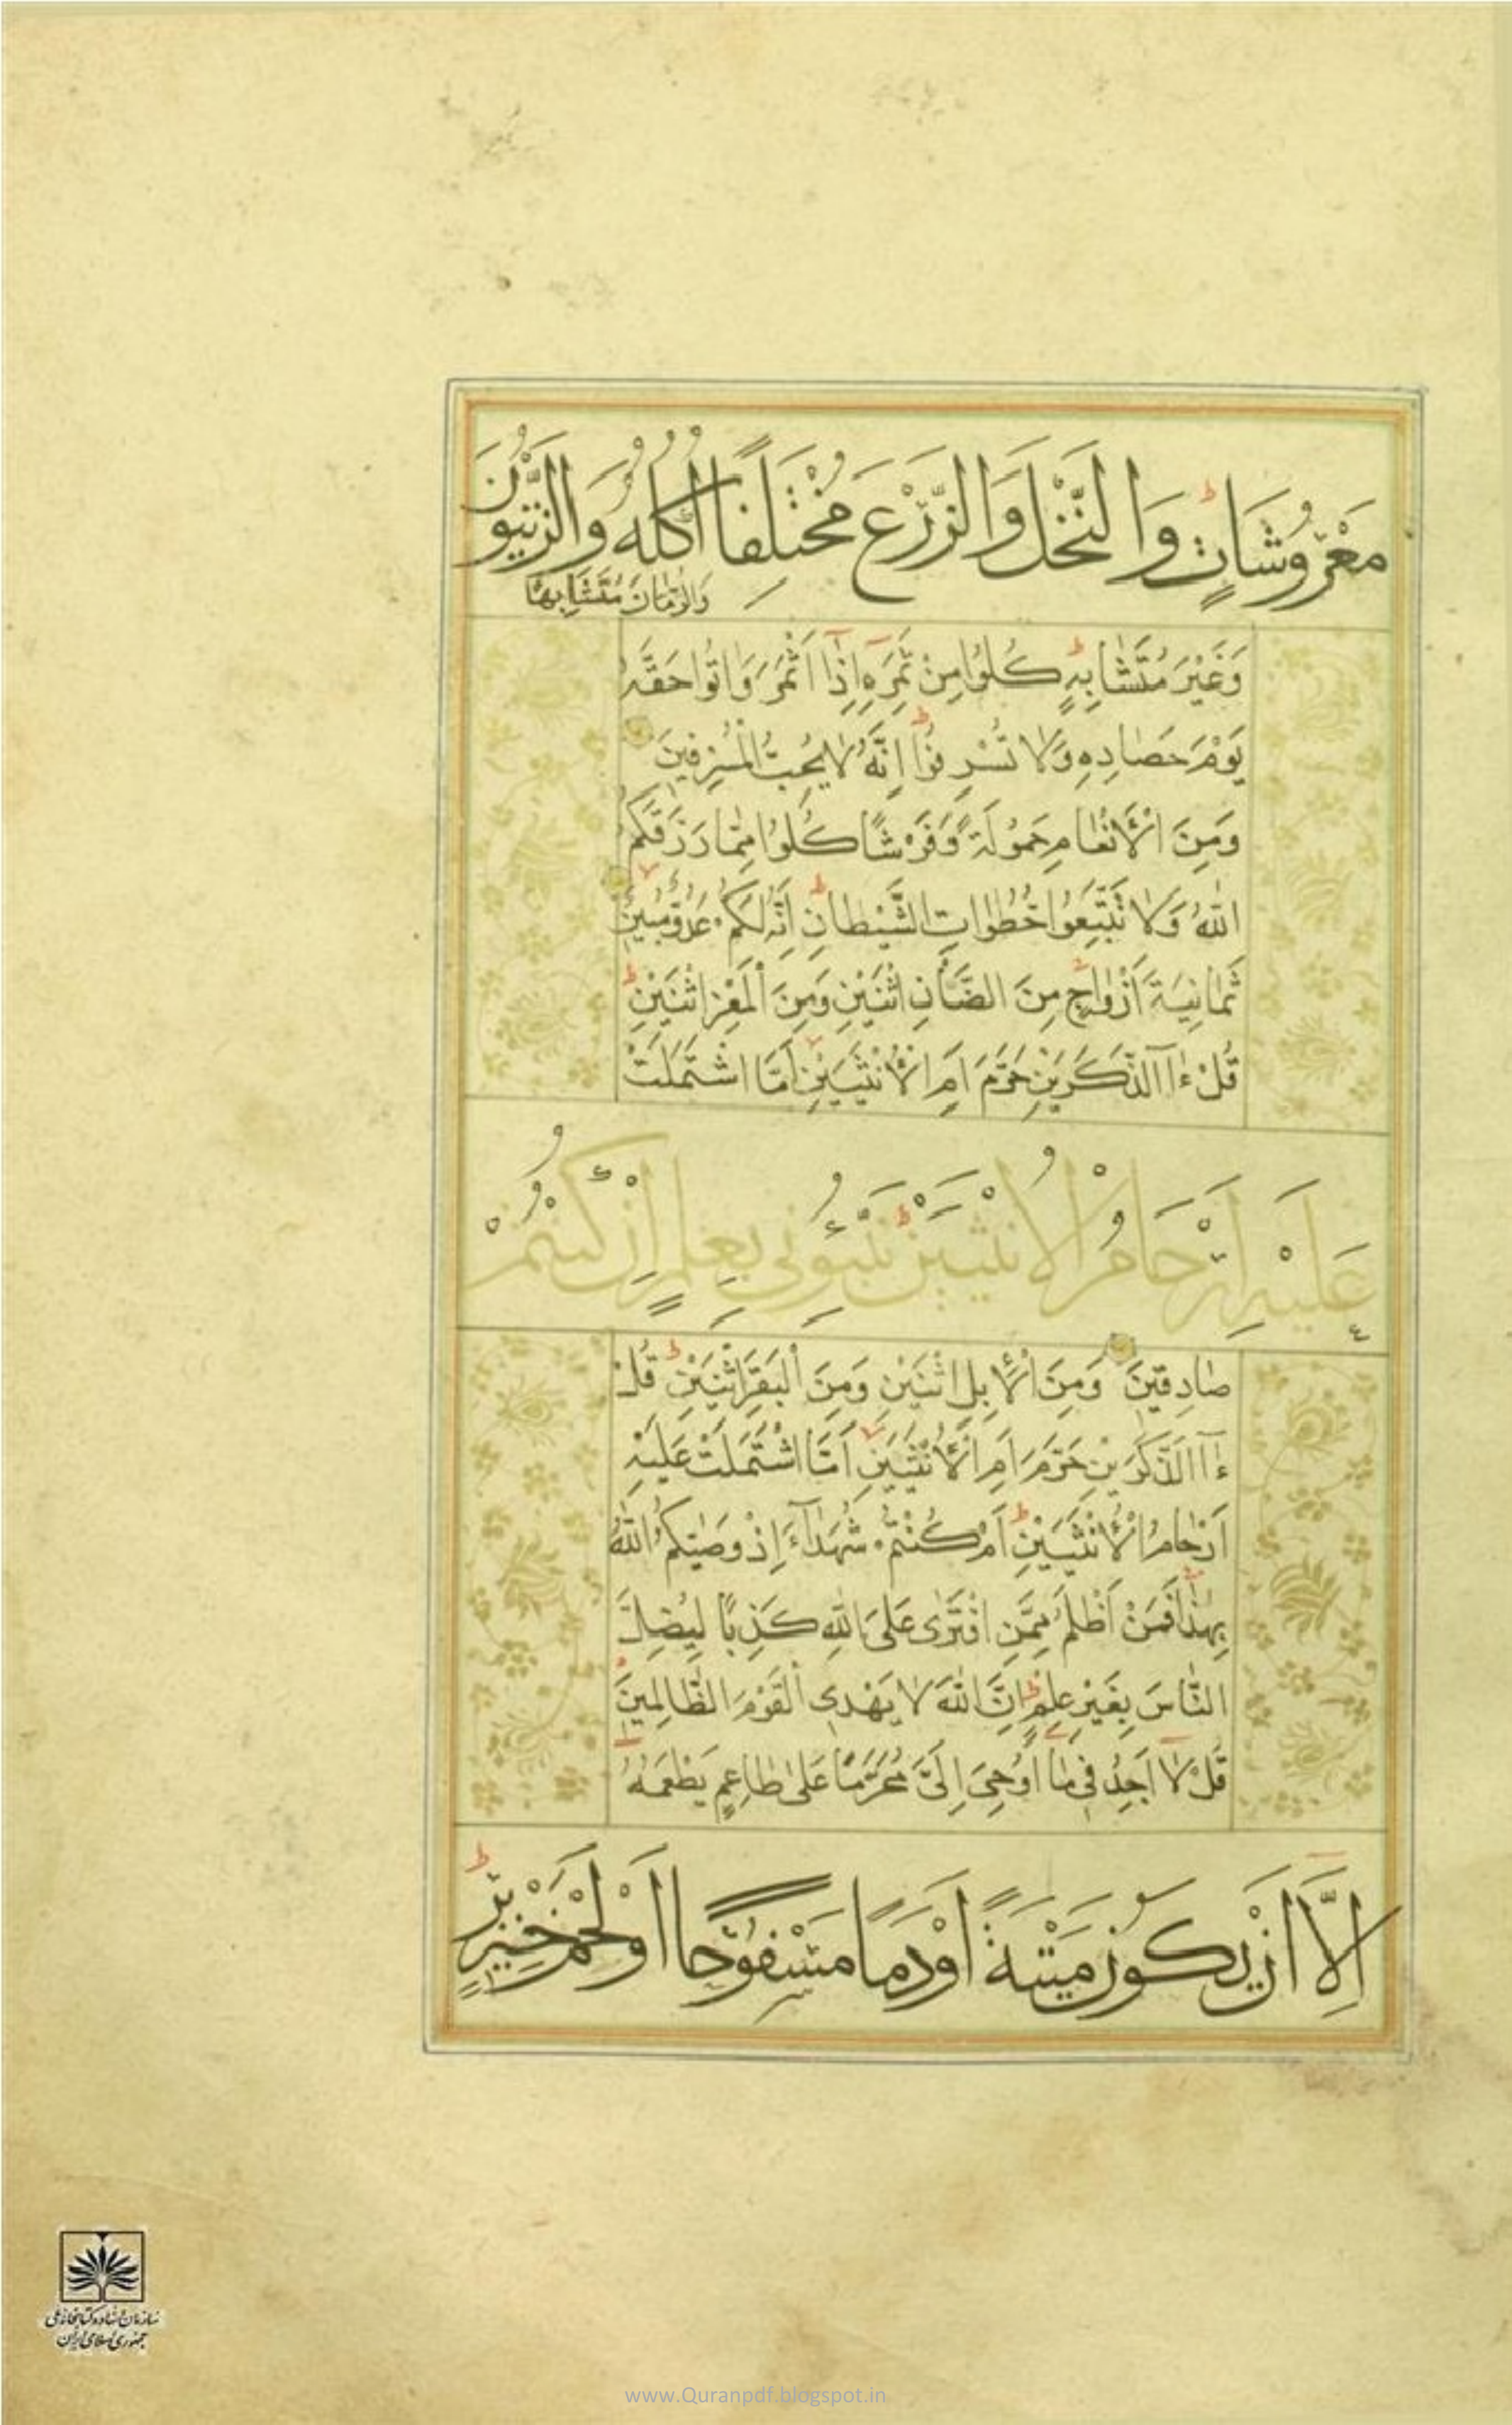 مَعْرُوشَاتٍ وَالنَّخْلَ وَالزَّرْعَ مُخْتَلِفًا أُكُلُهُ وَالزَّيْتُونَ
وَالرُّمَّانَ مُتَشَابِهًا
وَغَيْرَ مُتَشَابِهٍ كُلُوا مِنْ ثَمَرِهِ إِذَا أَثْمَرَ وَاٰتُوا حَقَّهُ
يَوْمَ حَصَادِهِ وَلَا تُسْرِفُوا إِنَّهُ لَا يُحِبُّ الْمُسْرِفِينَ
وَمِنَ الْأَنْعَامِ حَمُولَةً وَفَرْشًا كُلُوا مِمَّا رَزَقَكُمُ
اللّٰهُ وَلَا تَتَّبِعُوا خُطُوَاتِ الشَّيْطَانِ إِنَّهُ لَكُمْ عَدُوٌّ مُبِينٌ
ثَمَانِيَةَ أَزْوَاجٍ مِنَ الضَّأْنِ اثْنَيْنِ وَمِنَ الْمَعْزِ اثْنَيْنِ
قُلْ ءَآالذَّكَرَيْنِ حَرَّمَ أَمِ الْأُنْثَيَيْنِ أَمَّا اشْتَمَلَتْ
عَلَيْهِ أَرْحَامُ الْأُنْثَيَيْنِ نَبِّئُونِي بِعِلْمٍ إِنْ كُنْتُمْ
صَادِقِينَ وَمِنَ الْإِبِلِ اثْنَيْنِ وَمِنَ الْبَقَرِ اثْنَيْنِ قُلْ
ءَآالذَّكَرَيْنِ حَرَّمَ أَمِ الْأُنْثَيَيْنِ أَمَّا اشْتَمَلَتْ عَلَيْهِ
أَرْحَامُ الْأُنْثَيَيْنِ أَمْ كُنْتُمْ شُهَدَاءَ إِذْ وَصّٰيكُمُ اللّٰهُ
بِهٰذَا فَمَنْ أَظْلَمُ مِمَّنِ افْتَرٰى عَلَى اللّٰهِ كَذِبًا لِيُضِلَّ
النَّاسَ بِغَيْرِ عِلْمٍ إِنَّ اللّٰهَ لَا يَهْدِي الْقَوْمَ الظَّالِمِينَ
قُلْ لَا أَجِدُ فِي مَا أُوحِيَ إِلَيَّ مُحَرَّمًا عَلٰى طَاعِمٍ يَطْعَمُهُ
إِلَّا أَنْ يَكُونَ مَيْتَةً أَوْ دَمًا مَسْفُوحًا أَوْ لَحْمَ خِنْزِيرٍ
سازمان اسناد و کتابخانه ملی
جمهوری اسلامی ایران
www.Quranpdf.blogspot.in